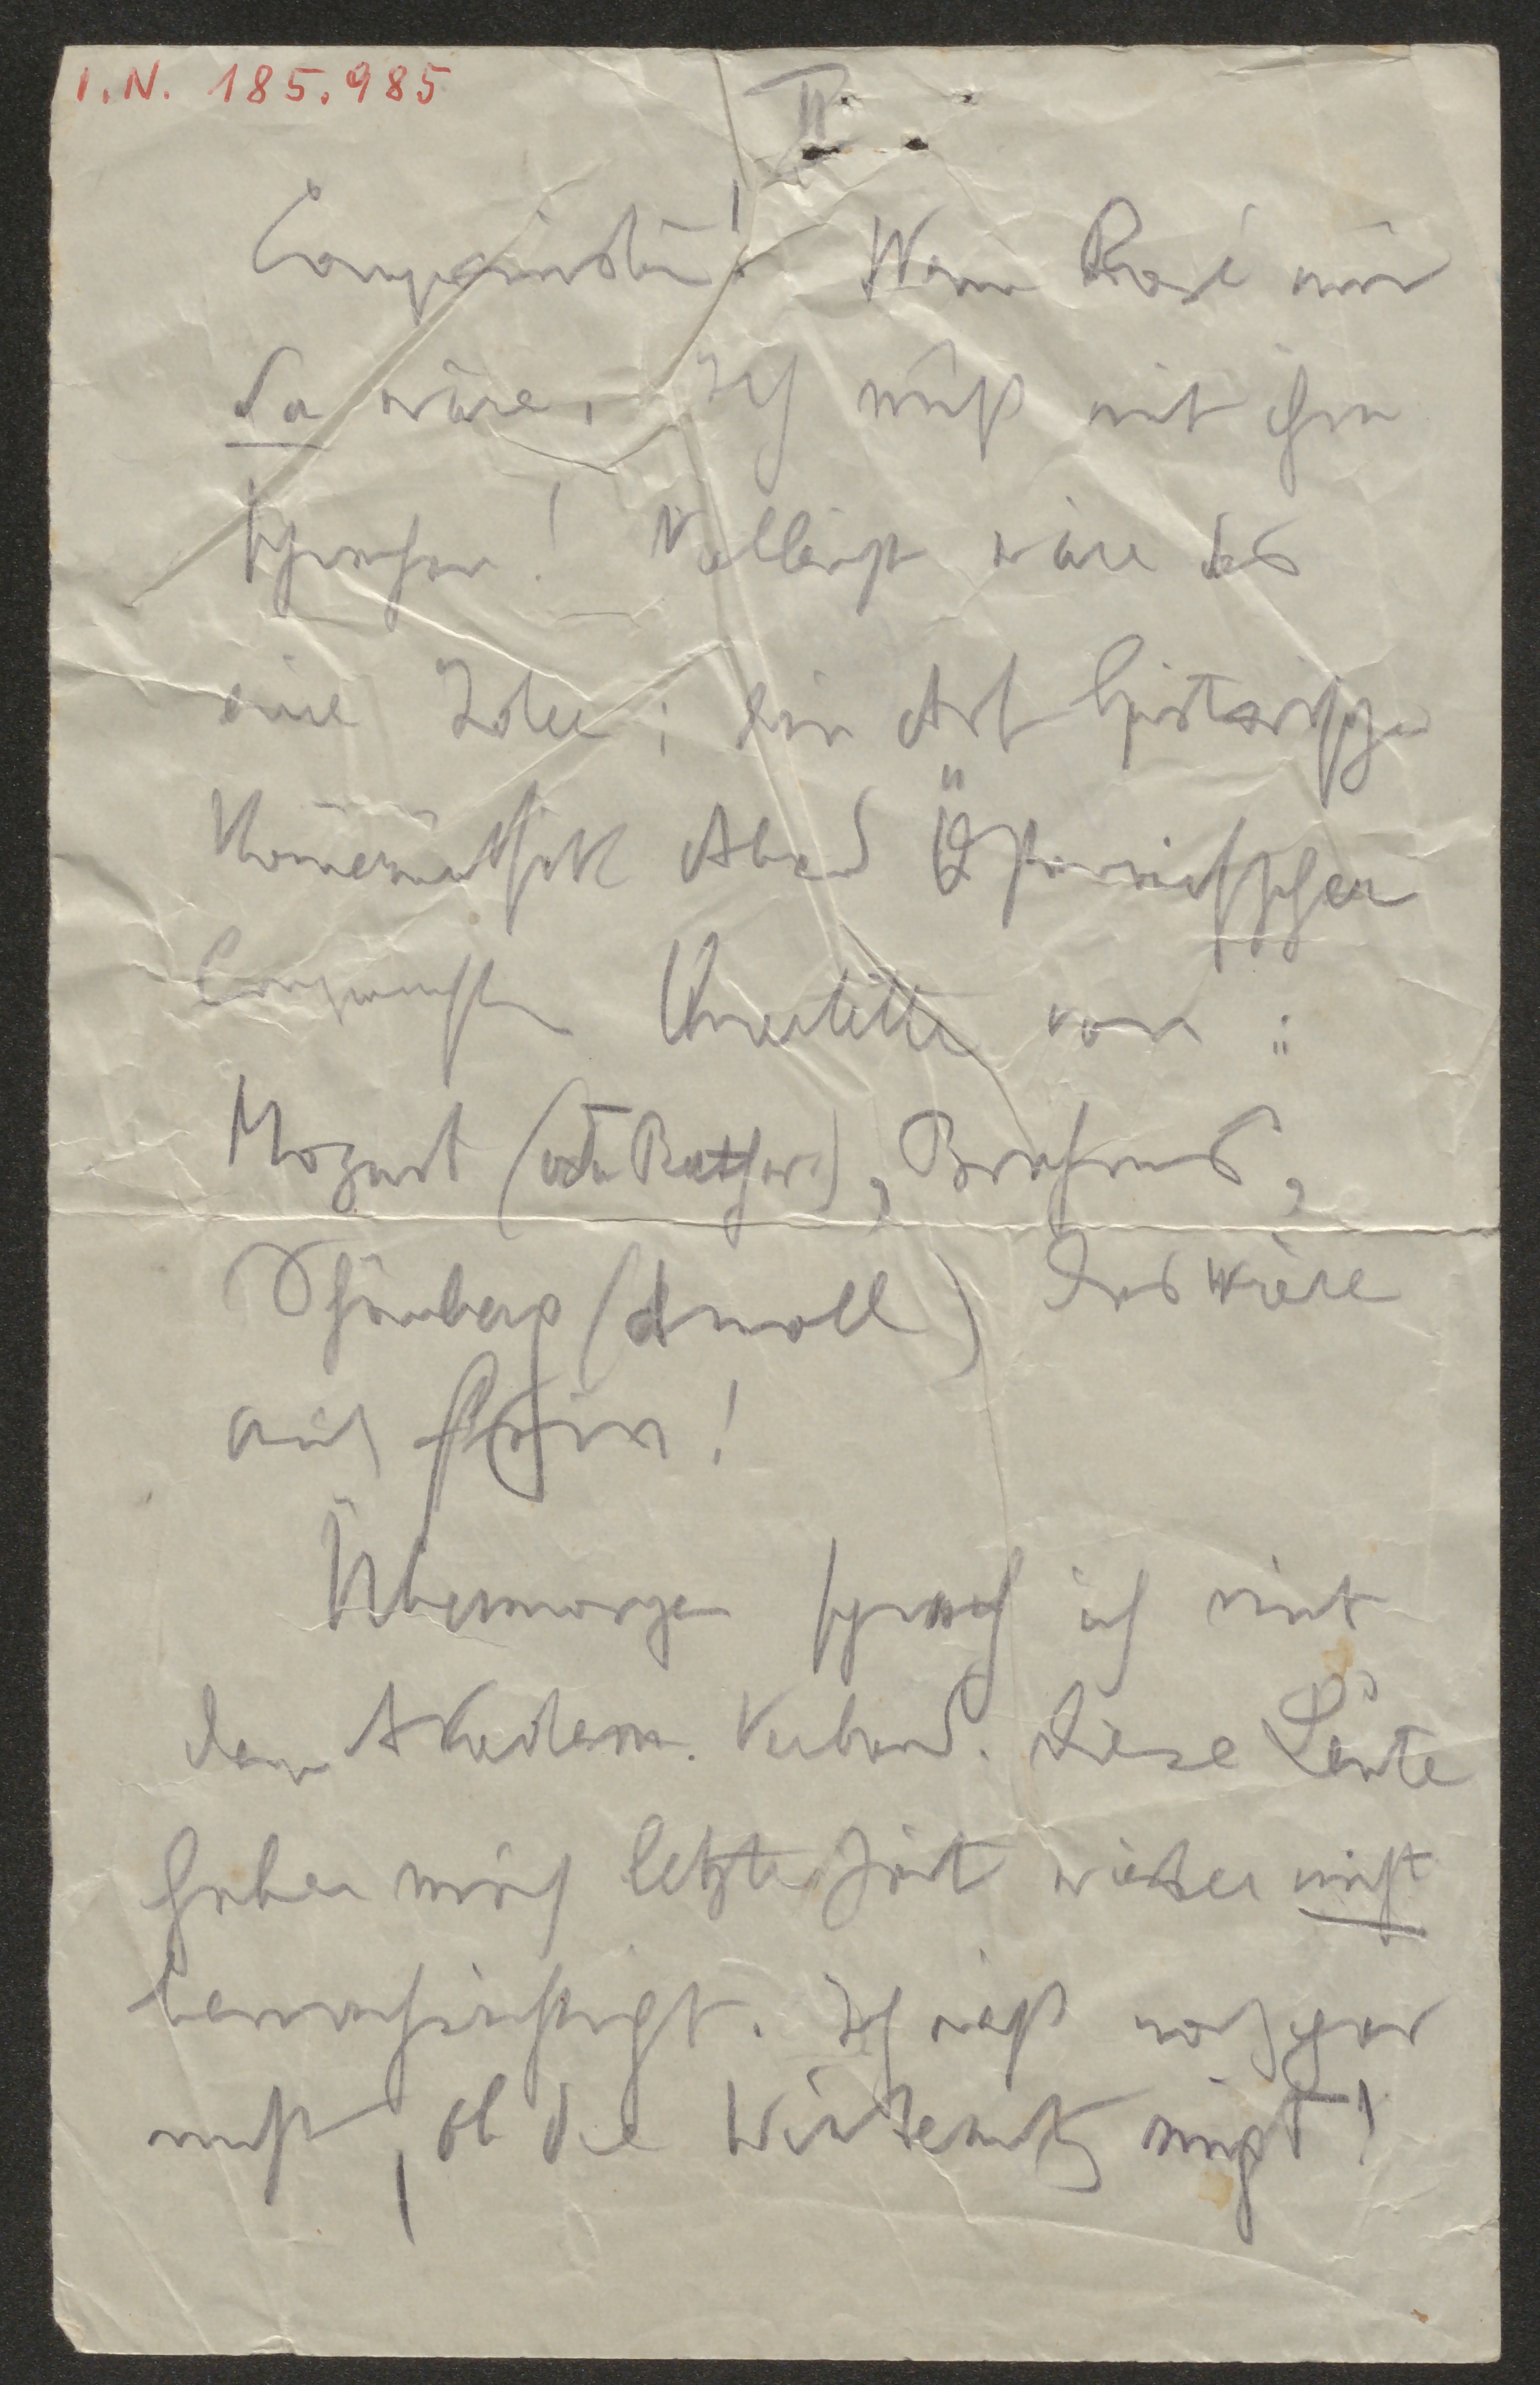 I.N. 185.985
II
Componisten! Wenn Rosé nur
da wäre. Ich muß mit ihm
sprechen! Vielleicht wäre das
eine Idee: ein Art historischer
Kammermusik Abend Österreichischer
Componisten Quartette von:
Mozart (oder Beethoven), Brahms,
Schönberg (d moll) das wäre
auch schön!
Übermorgen sprech ich mit
dem Akadem. Verband. Diese Leute
haben mich letzte Zeit wieder nicht
benachrichtigt. Ich weiß noch gar
nicht, ob die Winternitz singt!